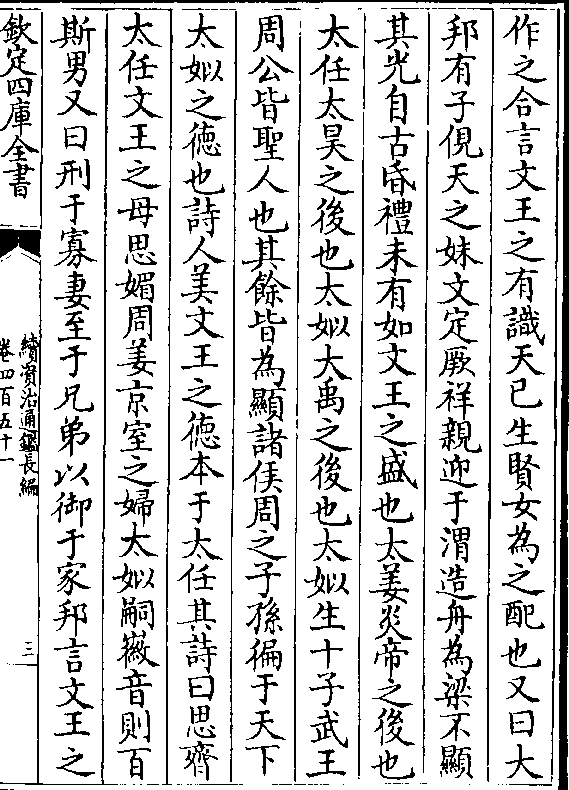 作之合言文王之有識天已生賢女為之配也又曰大
邦有子俔天之妹文定厥祥親迎于渭造舟為梁不顯
其光自古昏禮未有如文王之盛也太姜炎帝之後也
太任太昊之後也太姒大禹之後也太姒生十子武王
周公皆聖人也其餘皆為顯諸侯周之子孫徧于天下
太姒之徳也詩人美文王之徳本于太任其詩曰思齊
太任文王之母思媚周姜京室之婦太姒嗣徽音則百
斯男又曰刑于寡妻至于兄弟以御于家邦言文王之
欽定四庫全書
續資治通鑑長編
卷四百五十一
三